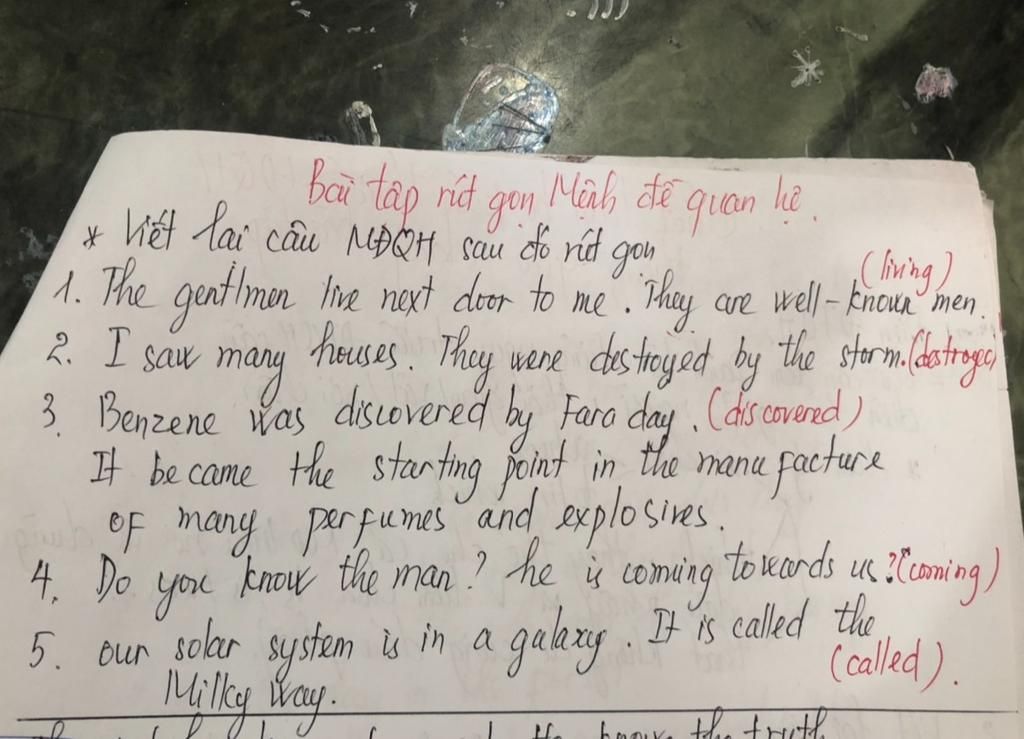 Bài tập rút gọn Mệnh đề quan hệ.
* Viết lại câu MĐQH sau đó rút gọn
(living)
1. The gentlmen live next door to me. They are well-known men.
2. I saw many houses. They were destroyed by the storm. (destroyed
3. Benzene was discovered by Fara day. (discovered)
It became the starting point in the manufacture
of many perfumes and explosives.
4. Do you know the man? he is coming towards us? (coming)
5. our solar system is in a galaxy. It is called the
(called).
Milky Way.
know the truth